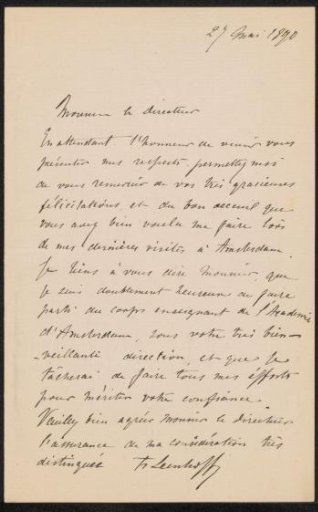 27 Mai 1890
Monsieur le directeur
En attendant l'honneur de venir vous
présenter mes respects, permettez moi
de vous remercier de vos très gracieuses
félicitations et du bon accueil que
vous avez bien voulu me faire lors
de mes dernières visites à Amsterdam.
Je tiens à vous dire monsieur, que
je suis doublement heureux de faire
parti du corps enseignant de l'Académie
d'Amsterdam, sous votre très bien-
-veillante direction, et que je
tâcherai de faire tous mes efforts
pour mériter votre confiance.
Veuillez bien agréer monsieur le directeur
l'assurance de ma considération très
distinguée F. Leenhoff